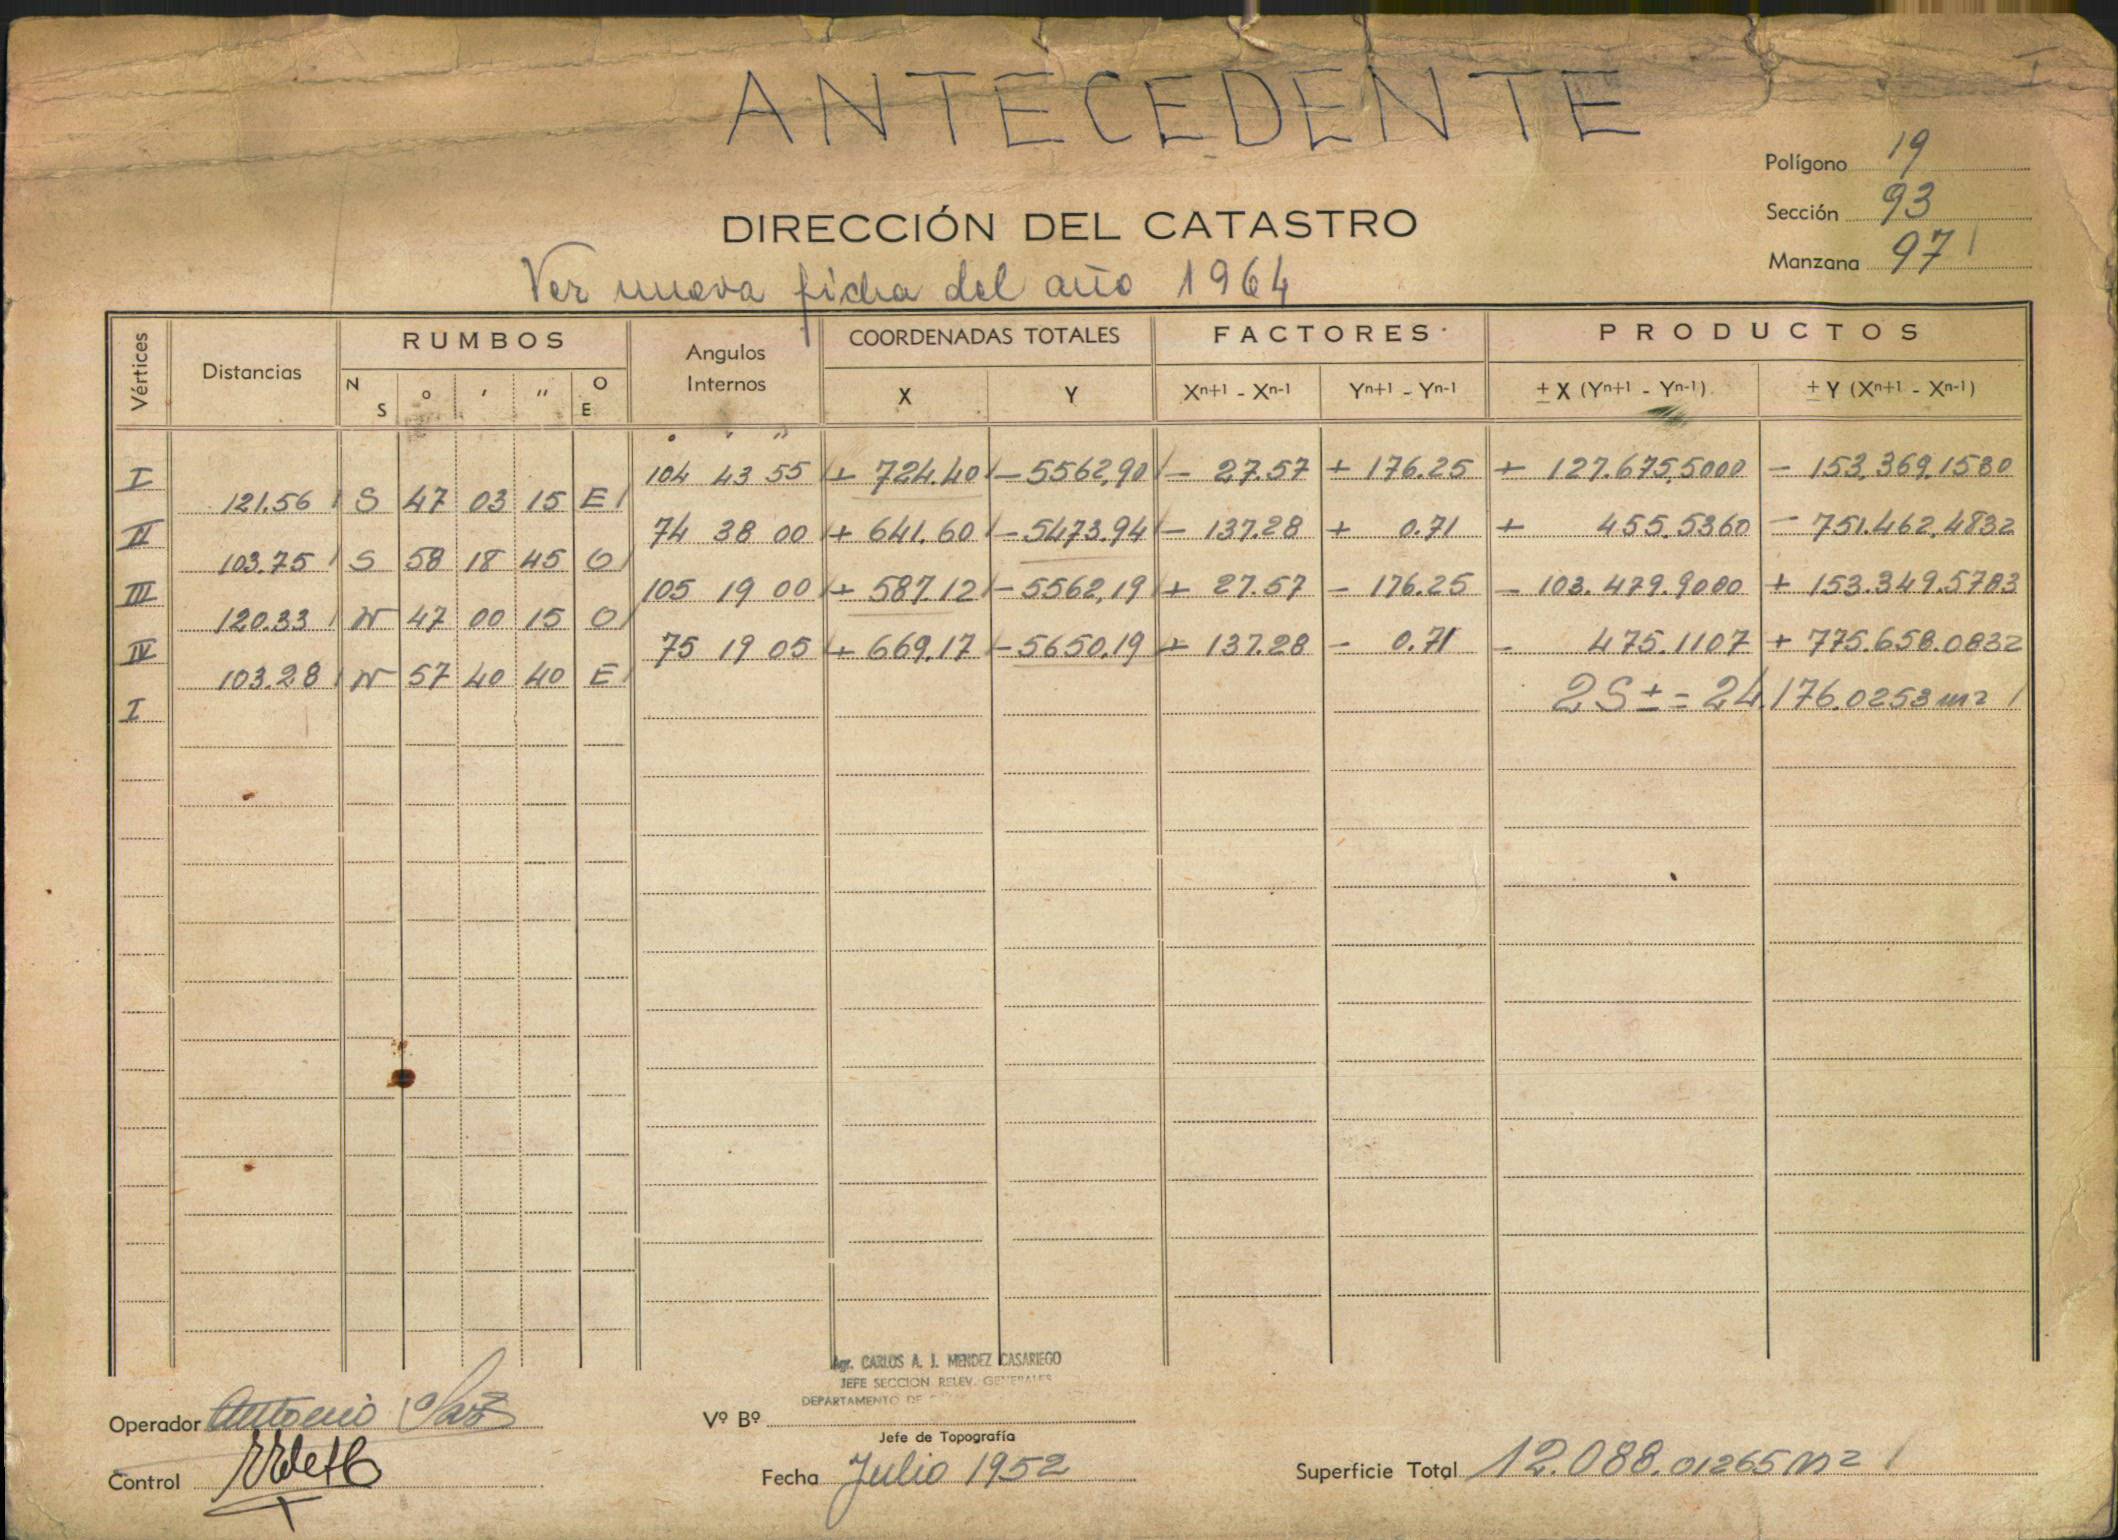 I
ANTECEDENTE
Polígono 19
Sección 93
Manzana 97
DIRECCIÓN DEL CATASTRO
Ver nueva ficha del año 1964
Vértices Distancias RUMBOS Angulos Internos COORDENADAS TOTALES FACTORES PRODUCTOS
N S ° ' " O E X Y Xn+1 - Xn-1 Yn+1 - Yn-1 ± X (Yn+1 - Yn-1) ± Y (Xn+1 - Xn-1)
° ' "
I 104 43 55 + 724.40 - 5562,90 - 27.57 + 176.25 + 127.675,5000 - 153,369,1580
121.56 S 47 03 15 E
II 74 38 00 + 641.60 - 5473.94 - 137.28 + 0.71 + 455.5360 - 751.462,4832
103.75 S 58 18 45 O
III 105 19 00 + 587.12 - 5562,19 + 27.57 - 176.25 - 103.479.9000 + 153.349.5783
120.33 N 47 00 15 O
IV 75 19 05 + 669.17 - 5650,19 + 137.28 - 0.71 - 475.1107 + 775.658.0832
103.28 N 57 40 40 E
I 2S ± = 24.176.0253 m2
Agr. CARLOS A. J. MENDEZ CASARIEGO
JEFE SECCION RELEV. GENERALES
DEPARTAMENTO DE
Operador Antonio
Vº Bº
Jefe de Topografía
Control
Fecha Julio 1952
Superficie Total 12.088.01265 m2